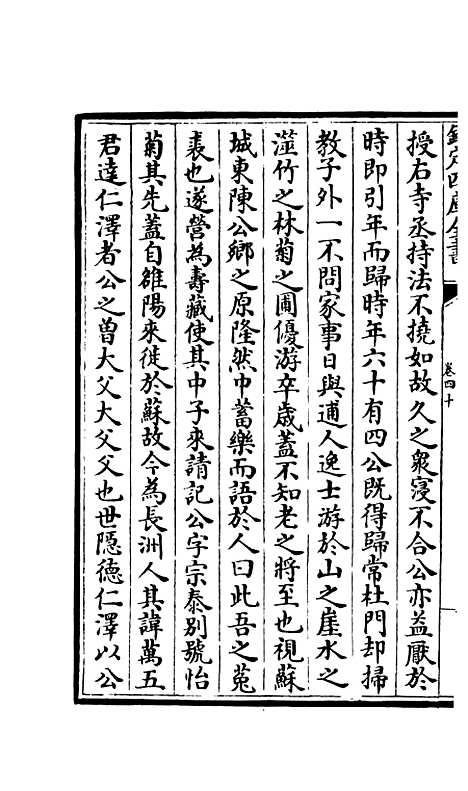 欽定四庫全書
卷四十
授右寺丞持法不撓如故久之衆寖不合公亦益厭於
時即引年而歸時年六十有四公既得歸常杜門却掃
教子外一不問家事日與逋人逸士游於山之崖水之
澨竹之林菊之圃優游卒歳蓋不知老之將至也視蘇
城東陳公鄉之原隆然中蓄樂而語於人曰此吾之菟
裘也遂營為壽藏使其中子來請記公字宗泰别號怡
菊其先蓋自雒陽來徙於蘇故今為長洲人其諱萬五
君達仁澤者公之曽大父大父父也世隱徳仁澤以公